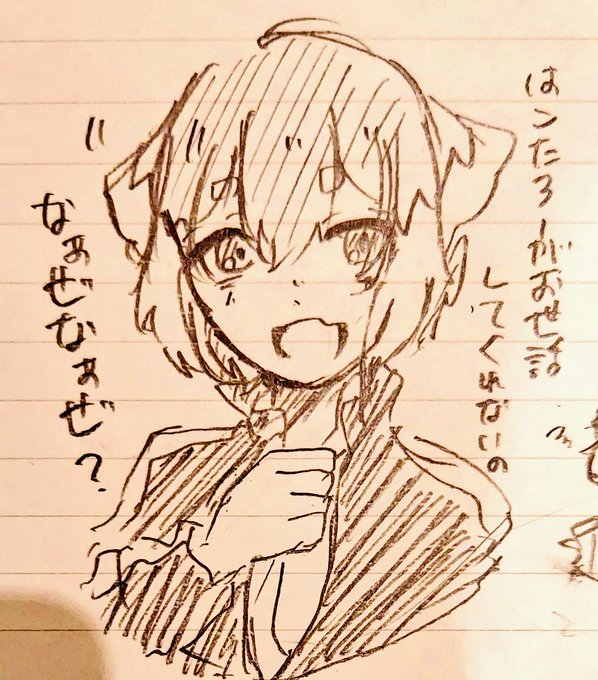 はンたろーがお世話
してくれないの
なぁぜなぁぜ?